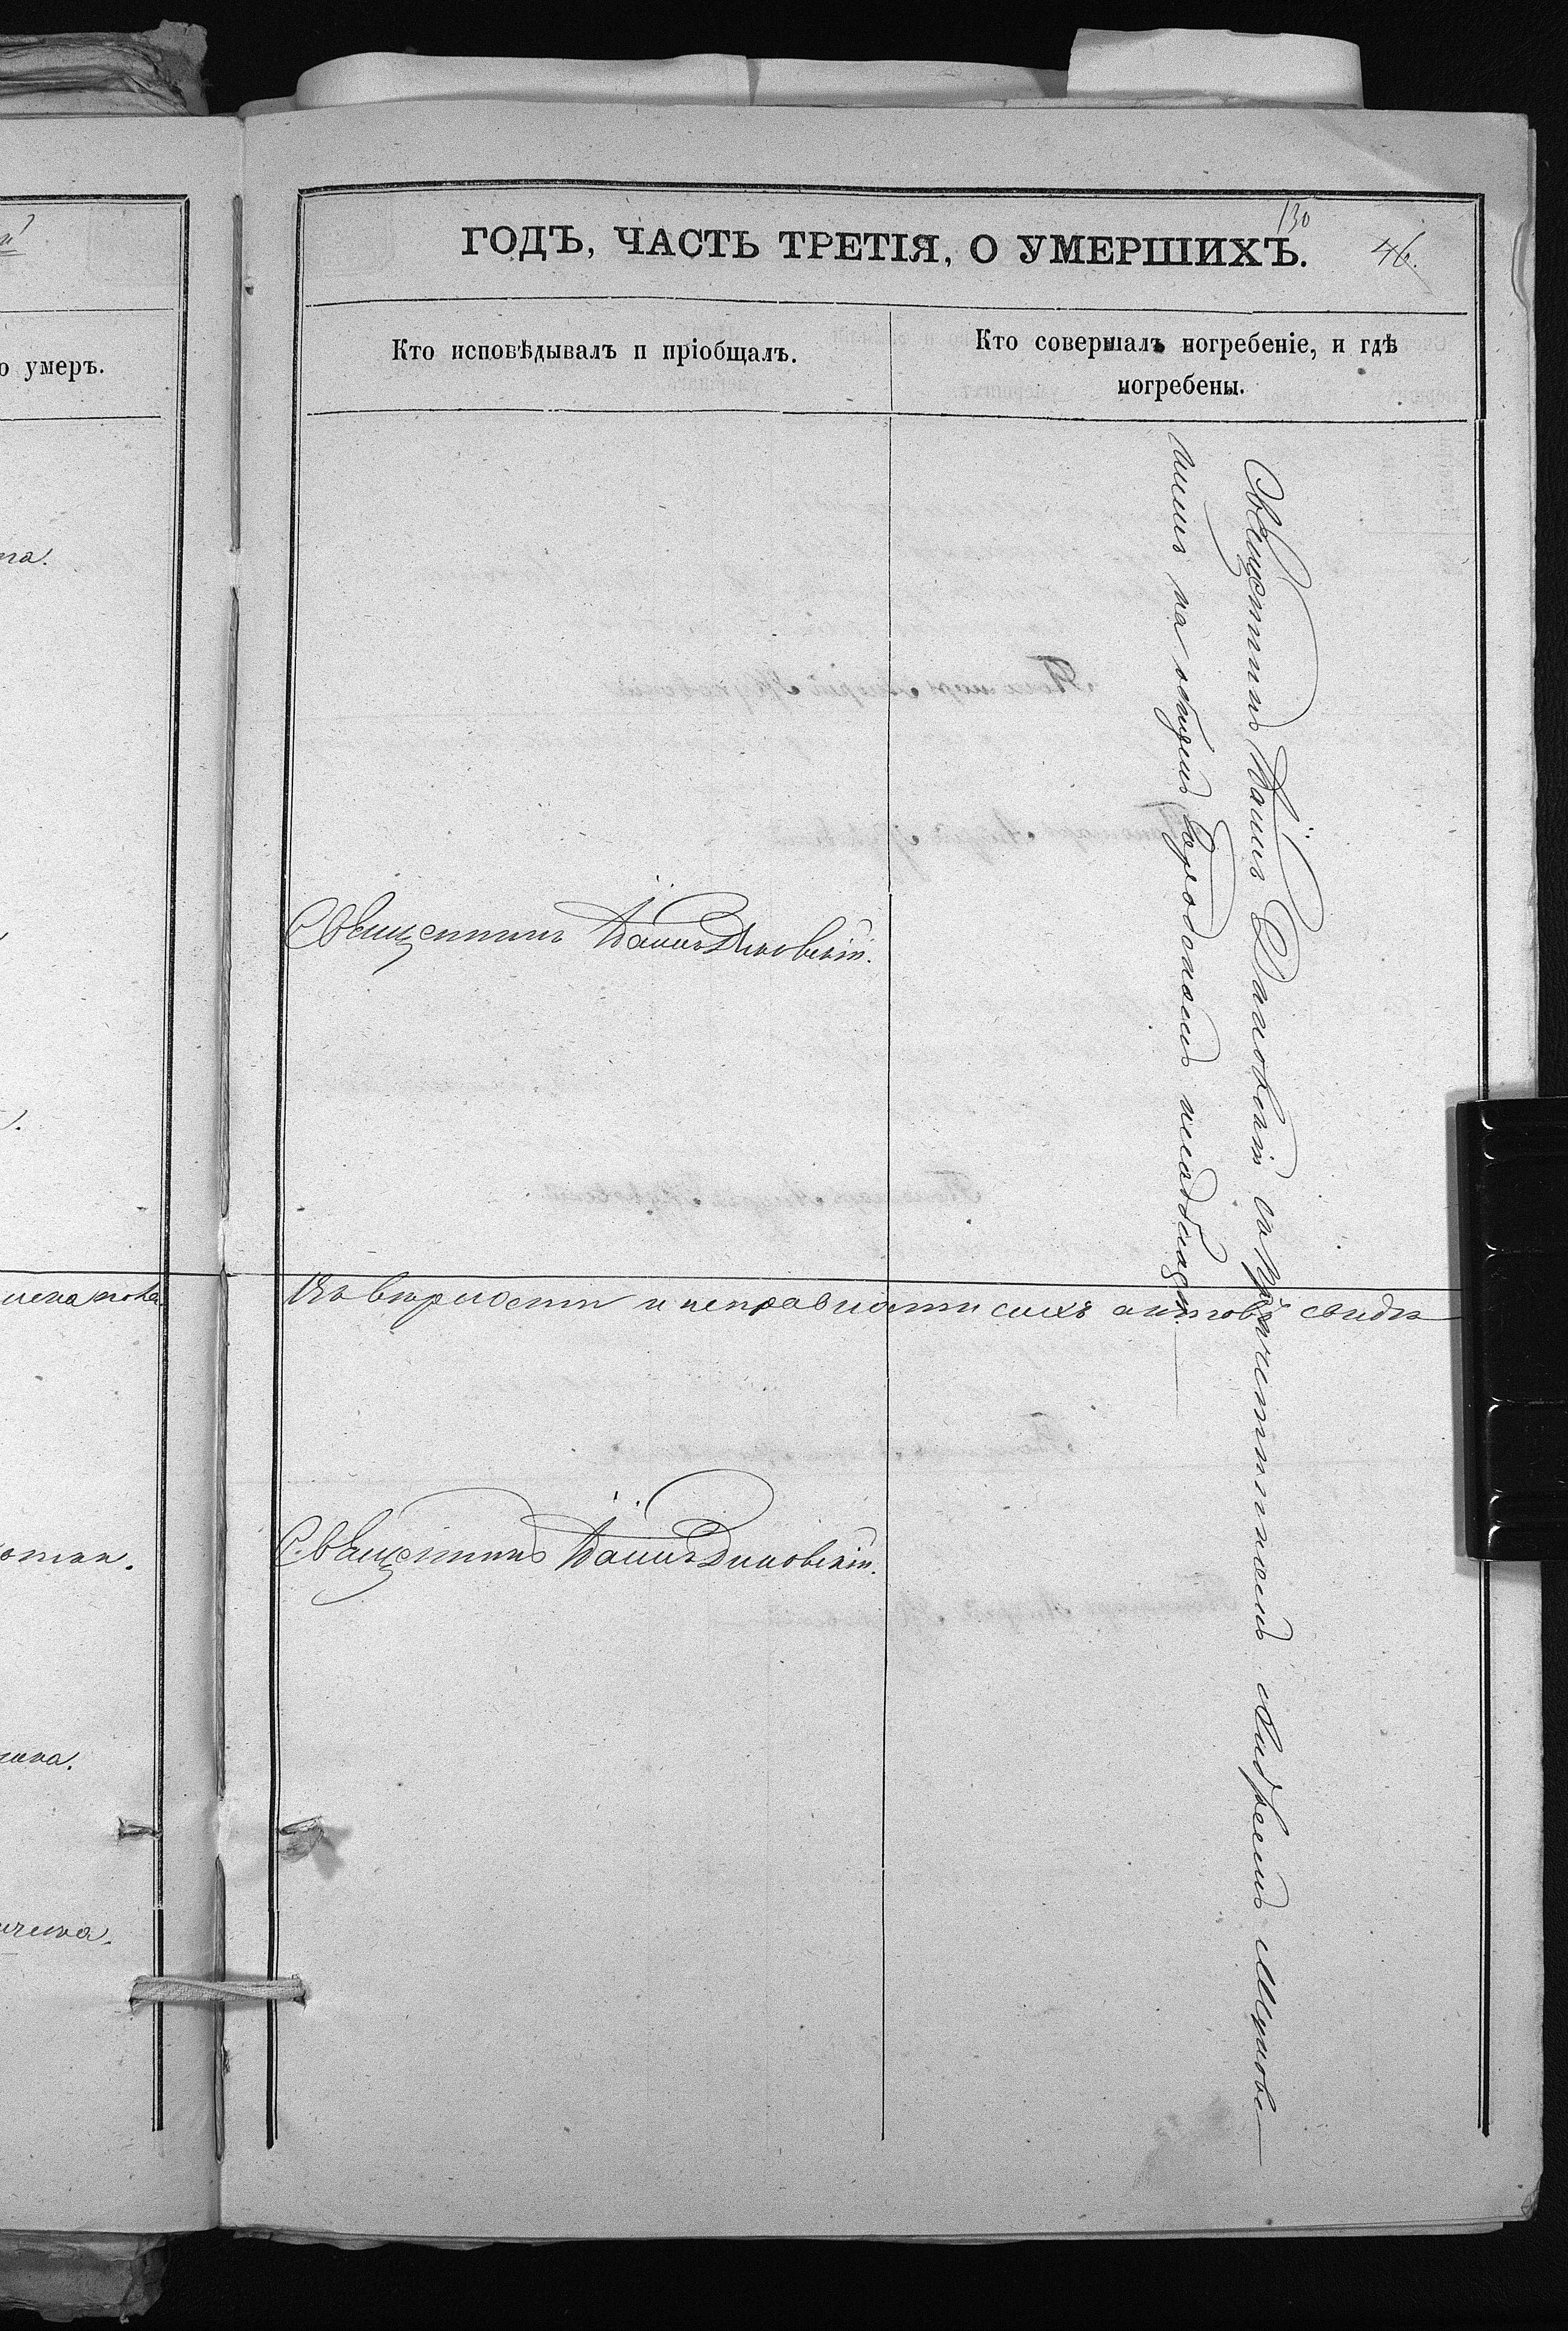 130
ГОДЪ, ЧАСТЬ ТРЕТІЯ, О УМЕРШИХЪ. 46.
о умеръ.
Кто исповѣдывалъ и пріобщалъ.
Кто совершалъ погребеніе, и гдѣ
погребены.
Священникъ Іоаннъ Диковскій.
Къ вѣрности и исправности сихъ актовъ свидѣ
Священникъ Іоаннъ Диковскій.
Священникъ Іоаннъ Диковскій съ причетникомъ Андреемъ
на общемъ городскомъ кладбищѣ.